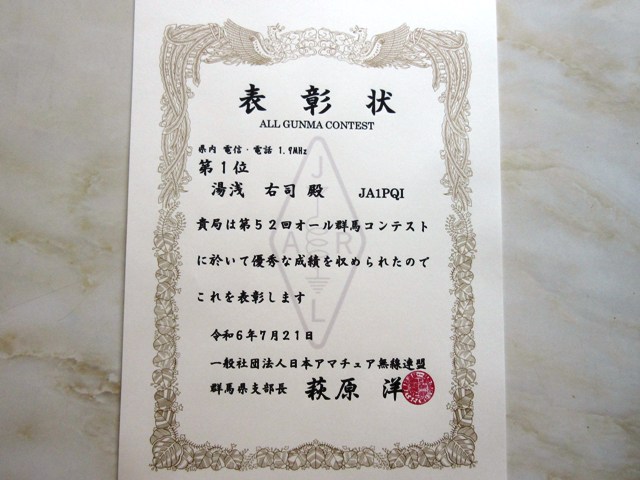 表彰状
ALL GUNMA CONTEST
県内 電信・電話 1.9MHz
第1位
湯浅 右司 殿 JA1PQI
貴局は第52回オール群馬コンテスト
に於いて優秀な成績を収められたので
これを表彰します
令和6年7月21日
一般社団法人日本アマチュア無線連盟
群馬県支部長 萩原 洋
J
A R
L